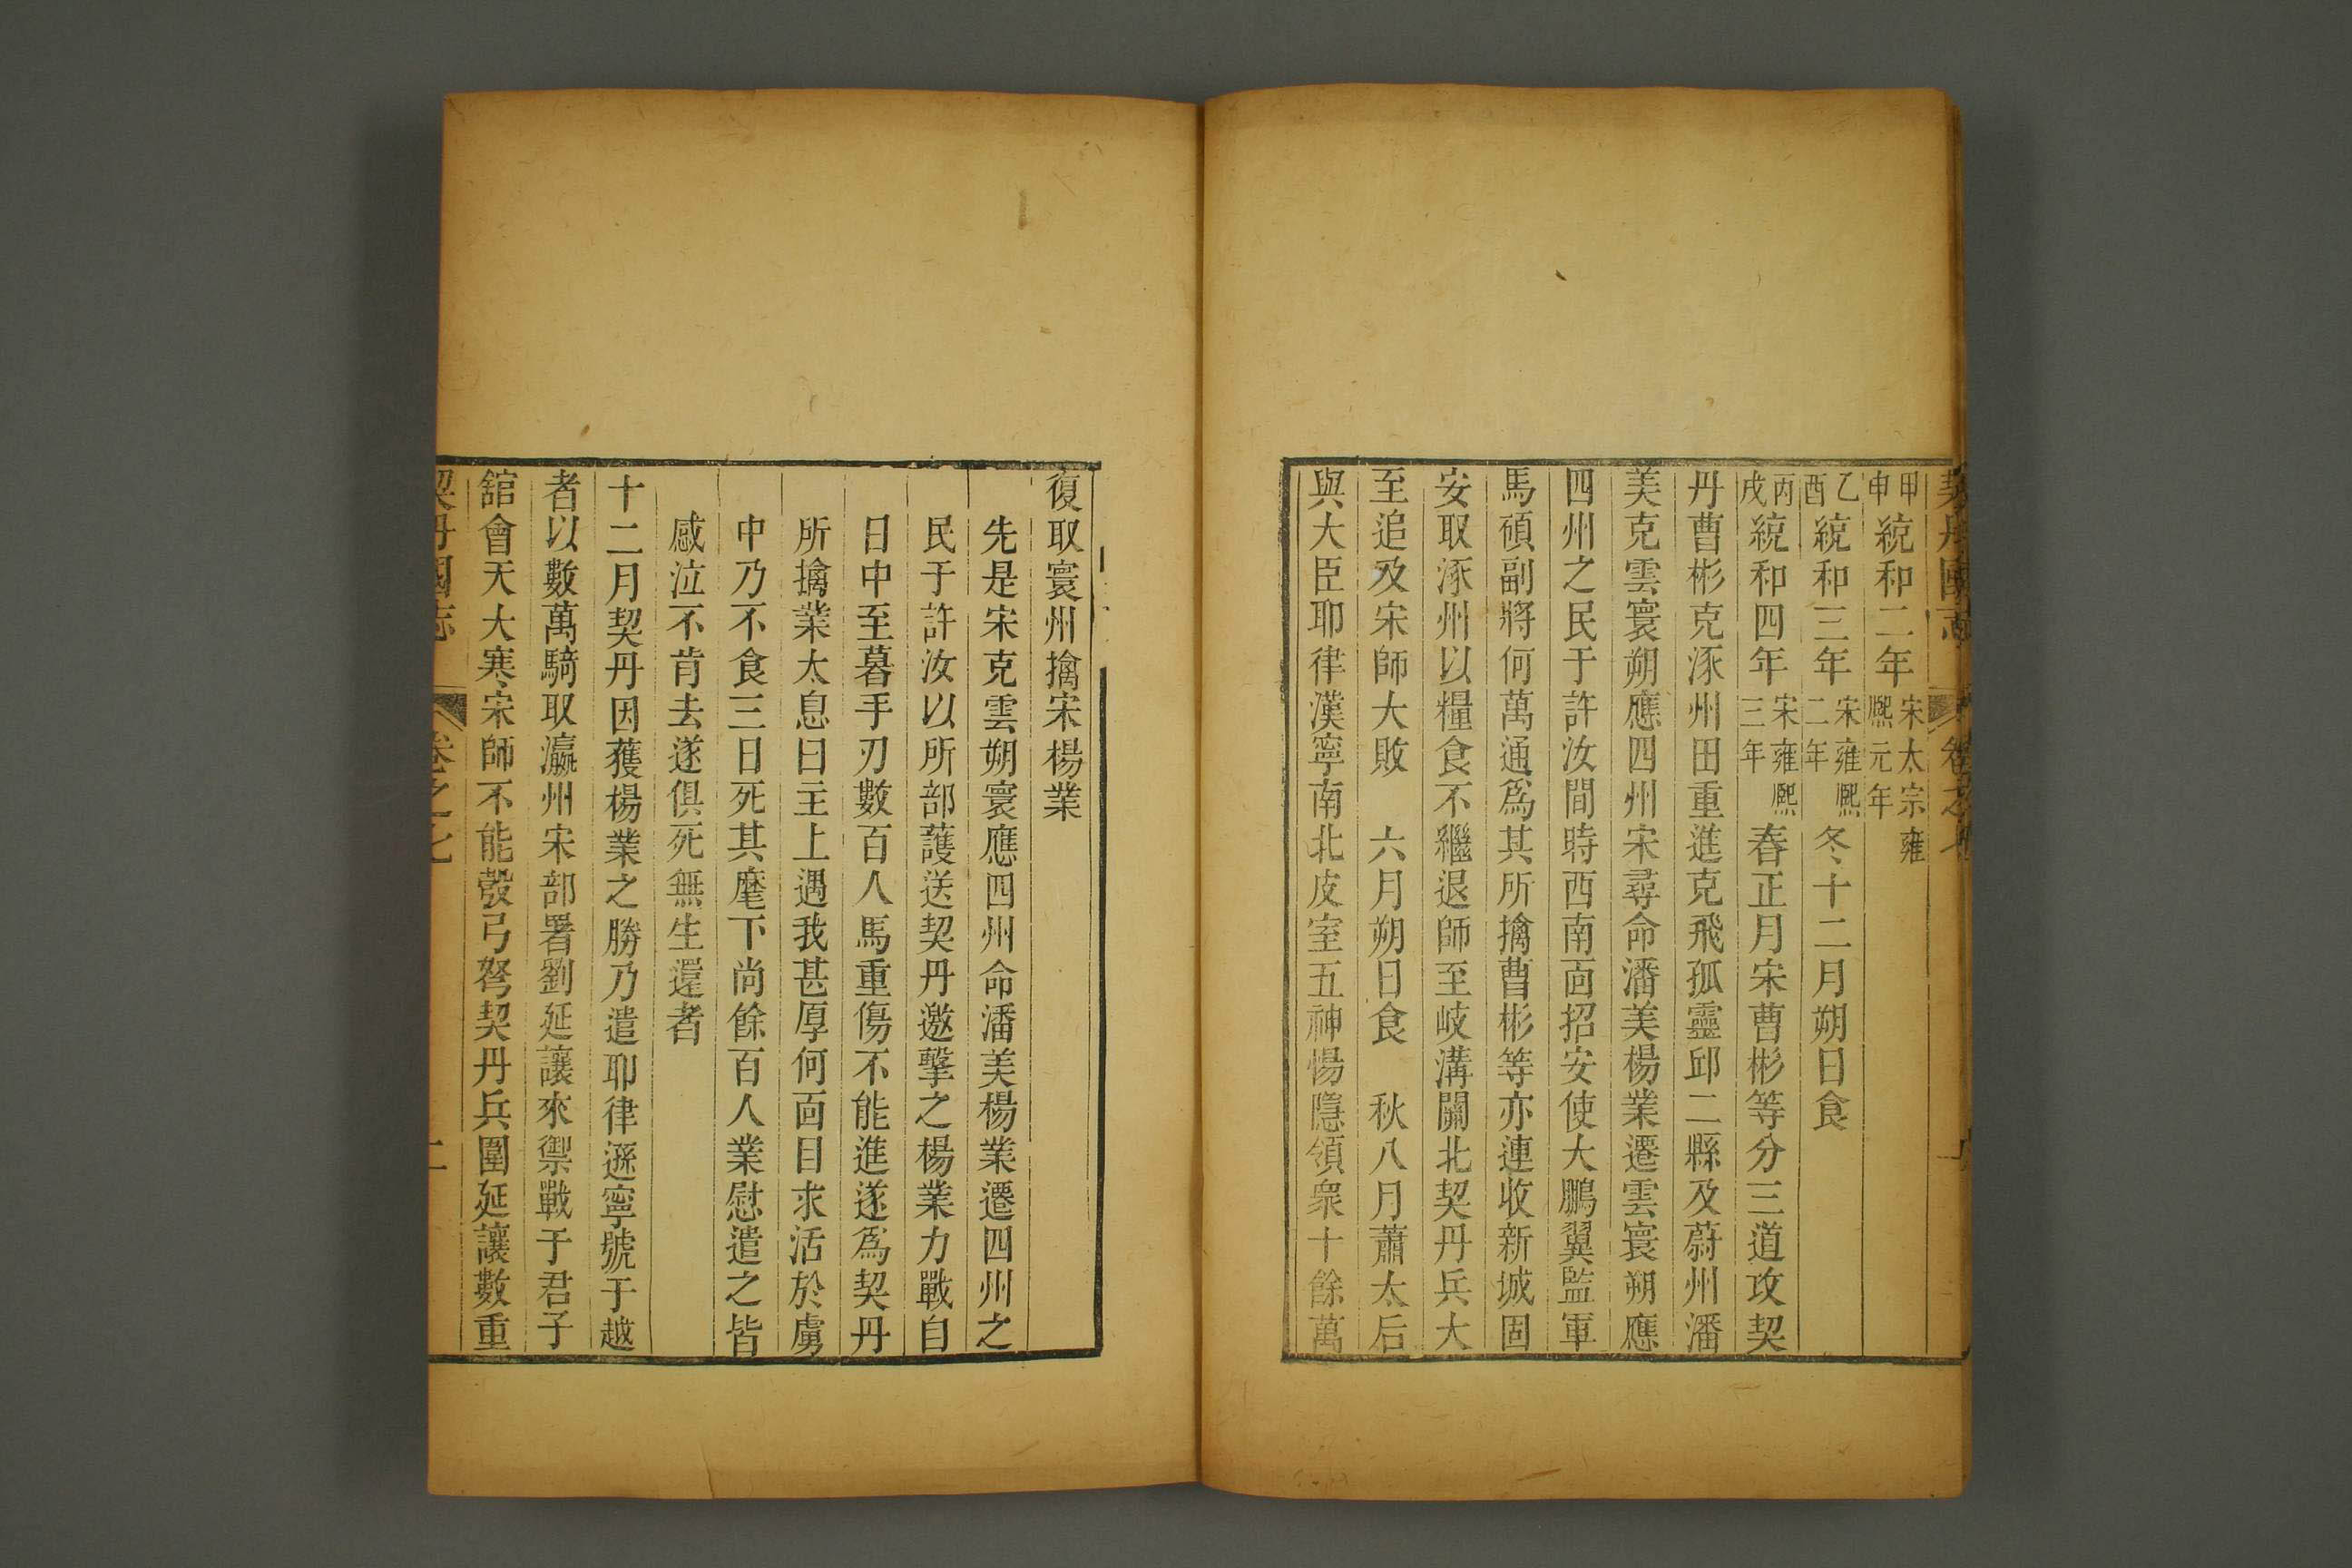 契丹國志 卷之七
甲申統和二年宋太宗雍熙元年
乙酉統和三年宋雍熙二年冬十二月朔日食
丙戌統和四年宋雍熙三年春正月宋曹彬等分三道攻契
丹曹彬克涿州田重進克飛孤靈邱二縣及蔚州潘
美克雲寰朔應四州宋尋命潘美楊業遷雲寰朔應
四州之民于許汝間時西南面招安使大鵬翼監軍
馬碩副將何萬通爲其所擒曹彬等亦連收新城固
安取涿州以糧食不繼退師至岐溝關北契丹兵大
至追及宋師大敗 六月朔日食 秋八月蕭太后
與大臣耶律漢寧南北皮室五神惕隱領衆十餘萬
復取寰州擒宋楊業
先是宋克雲朔寰應四州命潘美楊業遷四州之
民于許汝以所部護送契丹邀擊之楊業力戰自
日中至暮手刃數百人馬重傷不能進遂爲契丹
所擒業太息曰主上遇我甚厚何面目求活於虜
中乃不食三日死其麾下尚餘百人業慰遣之皆
感泣不肯去遂俱死無生還者
十二月契丹因獲楊業之勝乃遣耶律遜寧號于越
者以數萬騎取瀛州宋部署劉延讓來禦戰于君子
舘會天大寒宋師不能彀弓弩契丹兵圍延讓數重
契丹國志 卷之七